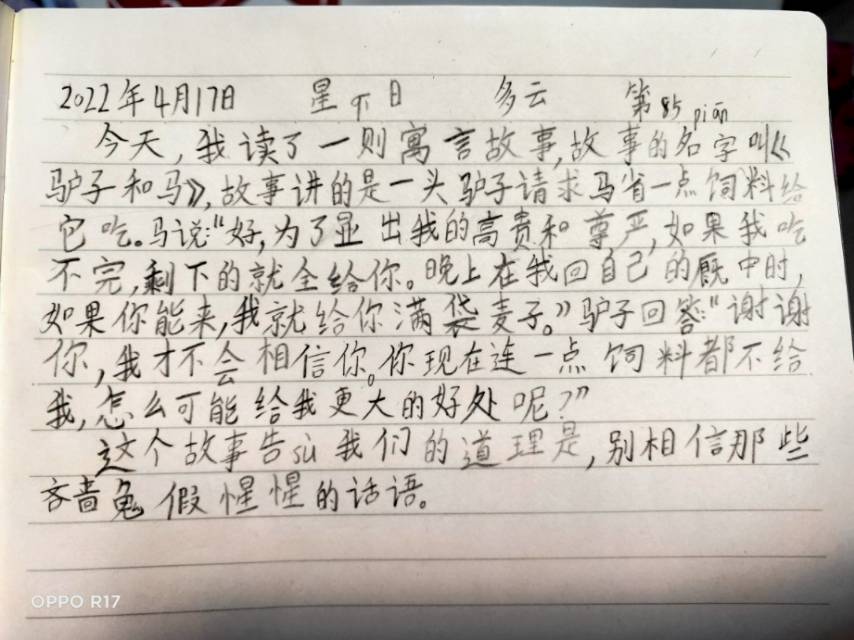 2022年4月17日 星qī日 多云 第85piān
今天,我读了一则寓言故事,故事的名字叫《
驴子和马》,故事讲的是一头驴子请求马省一点饲料给
它吃。马说:“好,为了显出我的高贵和尊严,如果我吃
不完,剩下的就全给你。晚上在我回自己的厩中时,
如果你能来,我就给你满袋麦子。”驴子回答:“谢谢
你,我才不会相信你。你现在连一点饲料都不给
我,怎么可能给我更大的好处呢?”
这个故事告sù我们的道理是,别相信那些
吝啬鬼假惺惺的话语。
OPPO R17